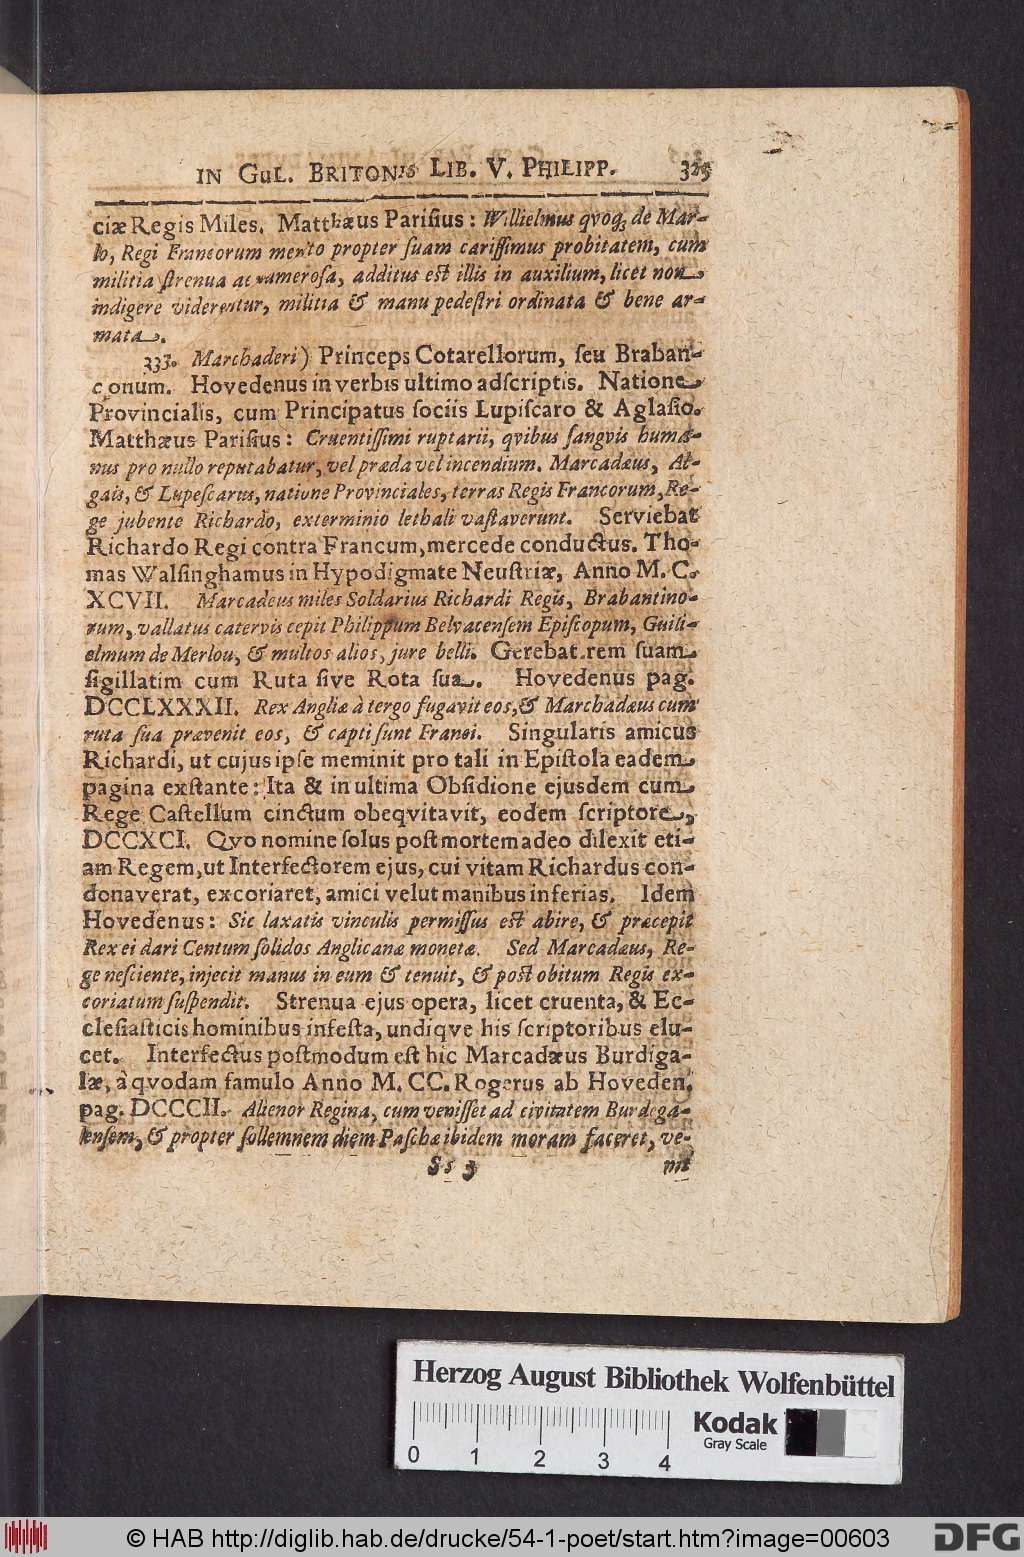 IN GUL. BRITONIS LIB. V. PHILIPP. 325
ciæ Regis Miles. Matthæus Parisius: Willielmus qvoq; de Mar-
lo, Regi Francorum merito propter suam carissimus probitatem, cum
militia strenua ac numerosa, additus est illis in auxilium, licet non
indigere viderentur, militia & manu pedestri ordinata & bene ar-
mata.
333. Marchaderi) Princeps Cotarellorum, seu Braban-
çonum. Hovedenus in verbis ultimo adscriptis. Natione
Provincialis, cum Principatus sociis Lupiscaro & Aglasio.
Matthæus Parisius: Cruentissimi ruptarii, qvibus sangvis huma-
nus pro nullo reputabatur, vel præda vel incendium. Marcadæus, Al-
gais, & Lupescarus, natione Provinciales, terras Regis Francorum, Re-
ge jubente Richardo, exterminio lethali vastaverunt. Serviebat
Richardo Regi contra Francum, mercede conductus. Tho-
mas Walsinghamus in Hypodigmate Neustriæ, Anno M. C.
XCVII. Marcadeus miles Soldarius Richardi Regis, Brabantino-
rum, vallatus catervis cepit Philippum Belvacensem Episcopum, Guili-
elmum de Merlou, & multos alios, jure belli. Gerebat rem suam
sigillatim cum Ruta sive Rota sua. Hovedenus pag.
DCCLXXXII. Rex Angliæ à tergo fugavit eos, & Marchadæus cum
ruta sua prævenit eos, & capti sunt Franci. Singularis amicus
Richardi, ut cujus ipse meminit pro tali in Epistola eadem
pagina exstante: Ita & in ultima Obsidione ejusdem cum
Rege Castellum cinctum obeqvitavit, eodem scriptore,
DCCXCI. Qvo nomine solus post mortem adeo dilexit eti-
am Regem, ut Interfectorem ejus, cui vitam Richardus con-
donaverat, excoriaret, amici velut manibus inferias. Idem
Hovedenus: Sic laxatis vinculis permissus est abire, & præcepit
Rex ei dari Centum solidos Anglicanæ monetæ. Sed Marcadæus, Re-
ge nesciente, injecit manus in eum & tenuit, & post obitum Regis ex-
coriatum suspendit. Strenua ejus opera, licet cruenta, & Ec-
clesiasticis hominibus infesta, undiqve his scriptoribus elu-
cet. Interfectus postmodum est hic Marcadæus Burdiga-
læ, à qvodam famulo Anno M. CC. Rogerus ab Hoveden.
pag. DCCCII. Alienor Regina, cum venisset ad civitatem Burdega-
lensem, & propter sollemnem diem Paschæ ibidem moram faceret, ve-
Ss 3 nit
Herzog August Bibliothek Wolfenbüttel
Kodak
Gray Scale
0 1 2 3 4
© HAB http://diglib.hab.de/drucke/54-1-poet/start.htm?image=00603
DFG